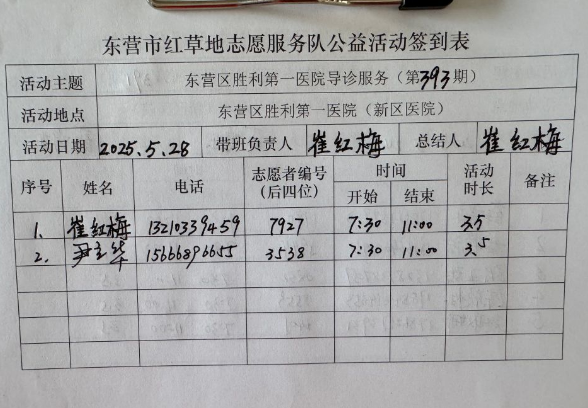 东营市红草地志愿服务队公益活动签到表
活动主题 东营区胜利第一医院导诊服务（第393期）
活动地点 东营区胜利第一医院（新区医院）
活动日期 2025.5.28 带班负责人 崔红梅 总结人 崔红梅
序号 姓名 电话 志愿者编号（后四位） 时间 开始 结束 活动时长 备注
1. 崔红梅 13210339459 7927 7:30 11:00 3.5
2. 尹 华 15666896655 3538 7:30 11:00 3.5